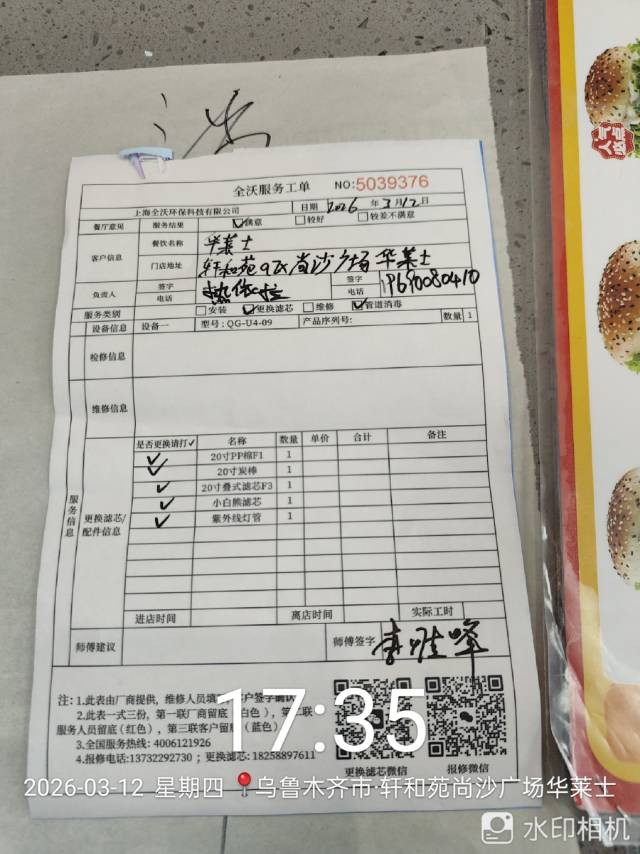 人气
必点
全沃服务工单 NO:5039376
上海全沃环保科技有限公司 日期 2026 年 3月12日
餐厅意见 服务结果 ☑满意 □较好 □较差不满意
客户信息 餐饮名称 华莱士
门店地址 轩和苑9区尚沙广场 华莱士
负责人 签字 热依拉 签字
电话 电话 19690080410
服务类别 □安装 ☑更换滤芯 □维修 ☑管道消毒
设备信息 设备一 型号:QG-U4-09 产品序列号: 数量 1
检修信息
服务信息
维修信息
更换滤芯/配件信息
是否更换请打✓ 名称 数量 单价 合计 备注
✓ 20寸PP棉F1 1
✓ 20寸炭棒 1
✓ 20寸叠式滤芯F3 1
✓ 小白熊滤芯 1
✓ 紫外线灯管 1
进店时间 离店时间 实际工时
师傅建议 师傅签字 李胜峰
注: 1.此表由厂商提供,维修人员填写,客户签字确认
2.此表一式三份,第一联厂商留底(白色),第二联
服务人员留底(红色),第三联客户留底(蓝色)
3.全国服务热线: 4006121926
4.报修电话:13732292730 ; 更换滤芯: 18258897611
更换滤芯微信 报修微信
17:35
2026-03-12 星期四 乌鲁木齐市·轩和苑尚沙广场华莱士
水印相机